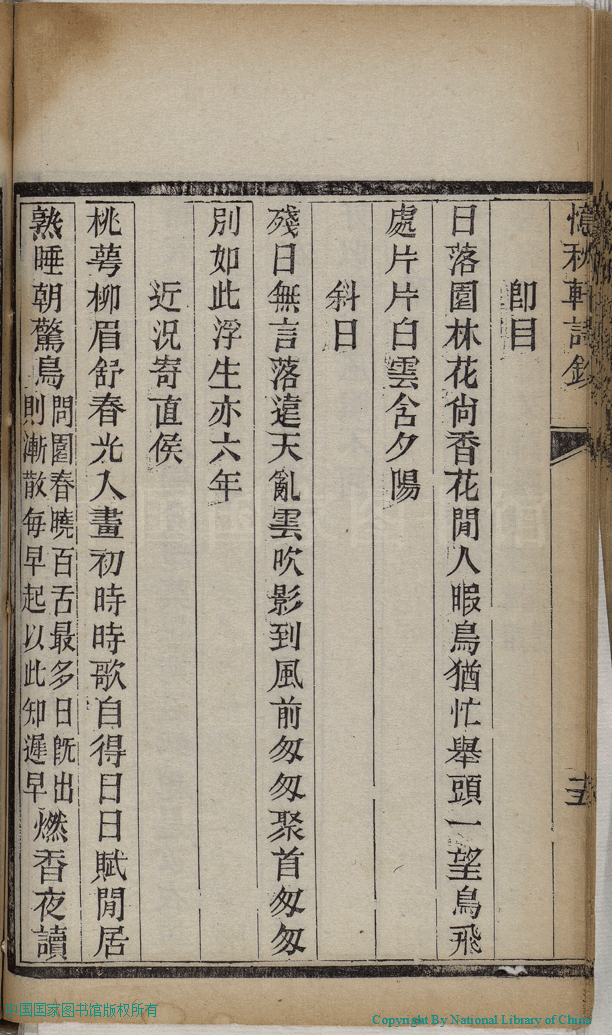 憶秋軒詩鈔
卽目
日落園林花尙香花閒人暇鳥猶忙舉頭一望鳥飛
處片片白雲含夕陽
斜日
殘日無言落遠天亂雲吹影到風前匆匆聚首匆匆
別如此浮生亦六年
近況寄直侯
桃萼柳眉舒春光入畫初時時歌自得日日賦閒居
熟睡朝驚鳥問園春曉百舌最多日旣出則漸散每早起以此知遲早燃香夜讀
中国国家图书馆版权所有
Copyright By National Library of China